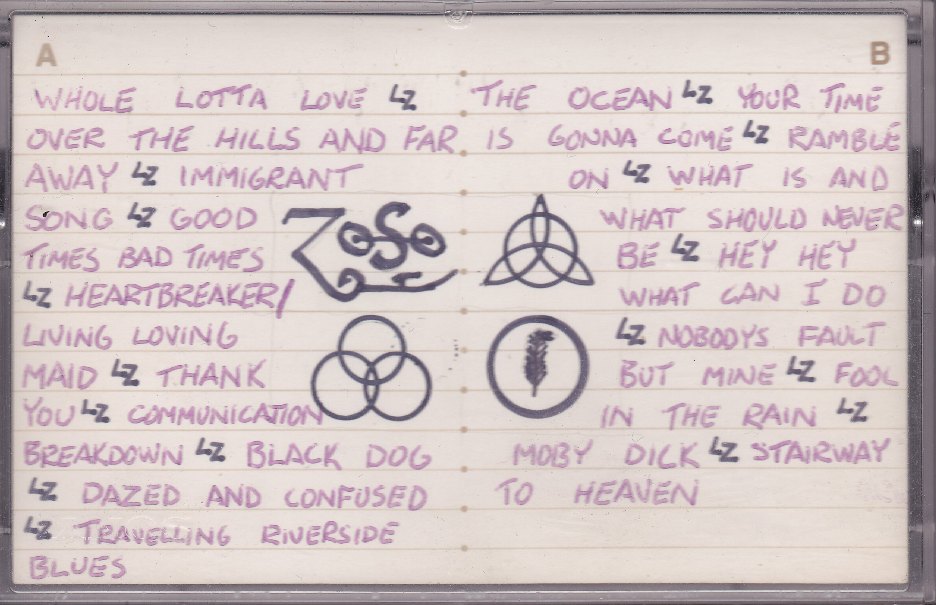 A
WHOLE LOTTA LOVE LZ
OVER THE HILLS AND FAR
AWAY LZ IMMIGRANT
SONG LZ GOOD
TIMES BAD TIMES
LZ HEARTBREAKER/
LIVING LOVING
MAID LZ THANK
YOU LZ COMMUNICATION
BREAKDOWN LZ BLACK DOG
LZ DAZED AND CONFUSED
LZ TRAVELLING RIVERSIDE
BLUES
ZOSO
B
THE OCEAN LZ YOUR TIME
IS GONNA COME LZ RAMBLE
ON LZ WHAT IS AND
WHAT SHOULD NEVER
BE LZ HEY HEY
WHAT CAN I DO
LZ NOBODYS FAULT
BUT MINE LZ FOOL
IN THE RAIN LZ
MOBY DICK LZ STAIRWAY
TO HEAVEN